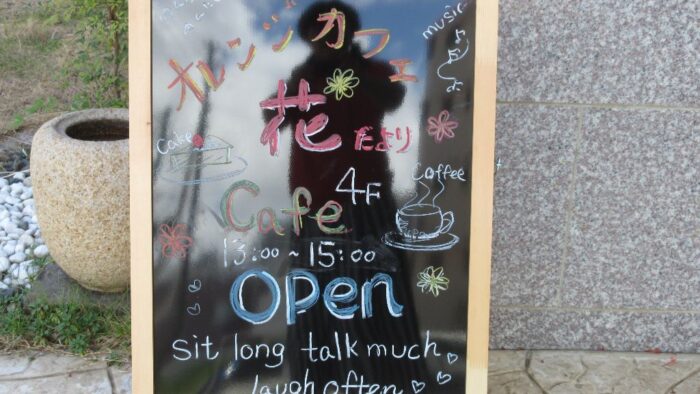 music
オレンジカフェ
花だより
Cake
Coffee
4F
Cafe
13:00~15:00
Open
sit long talk much
laugh often